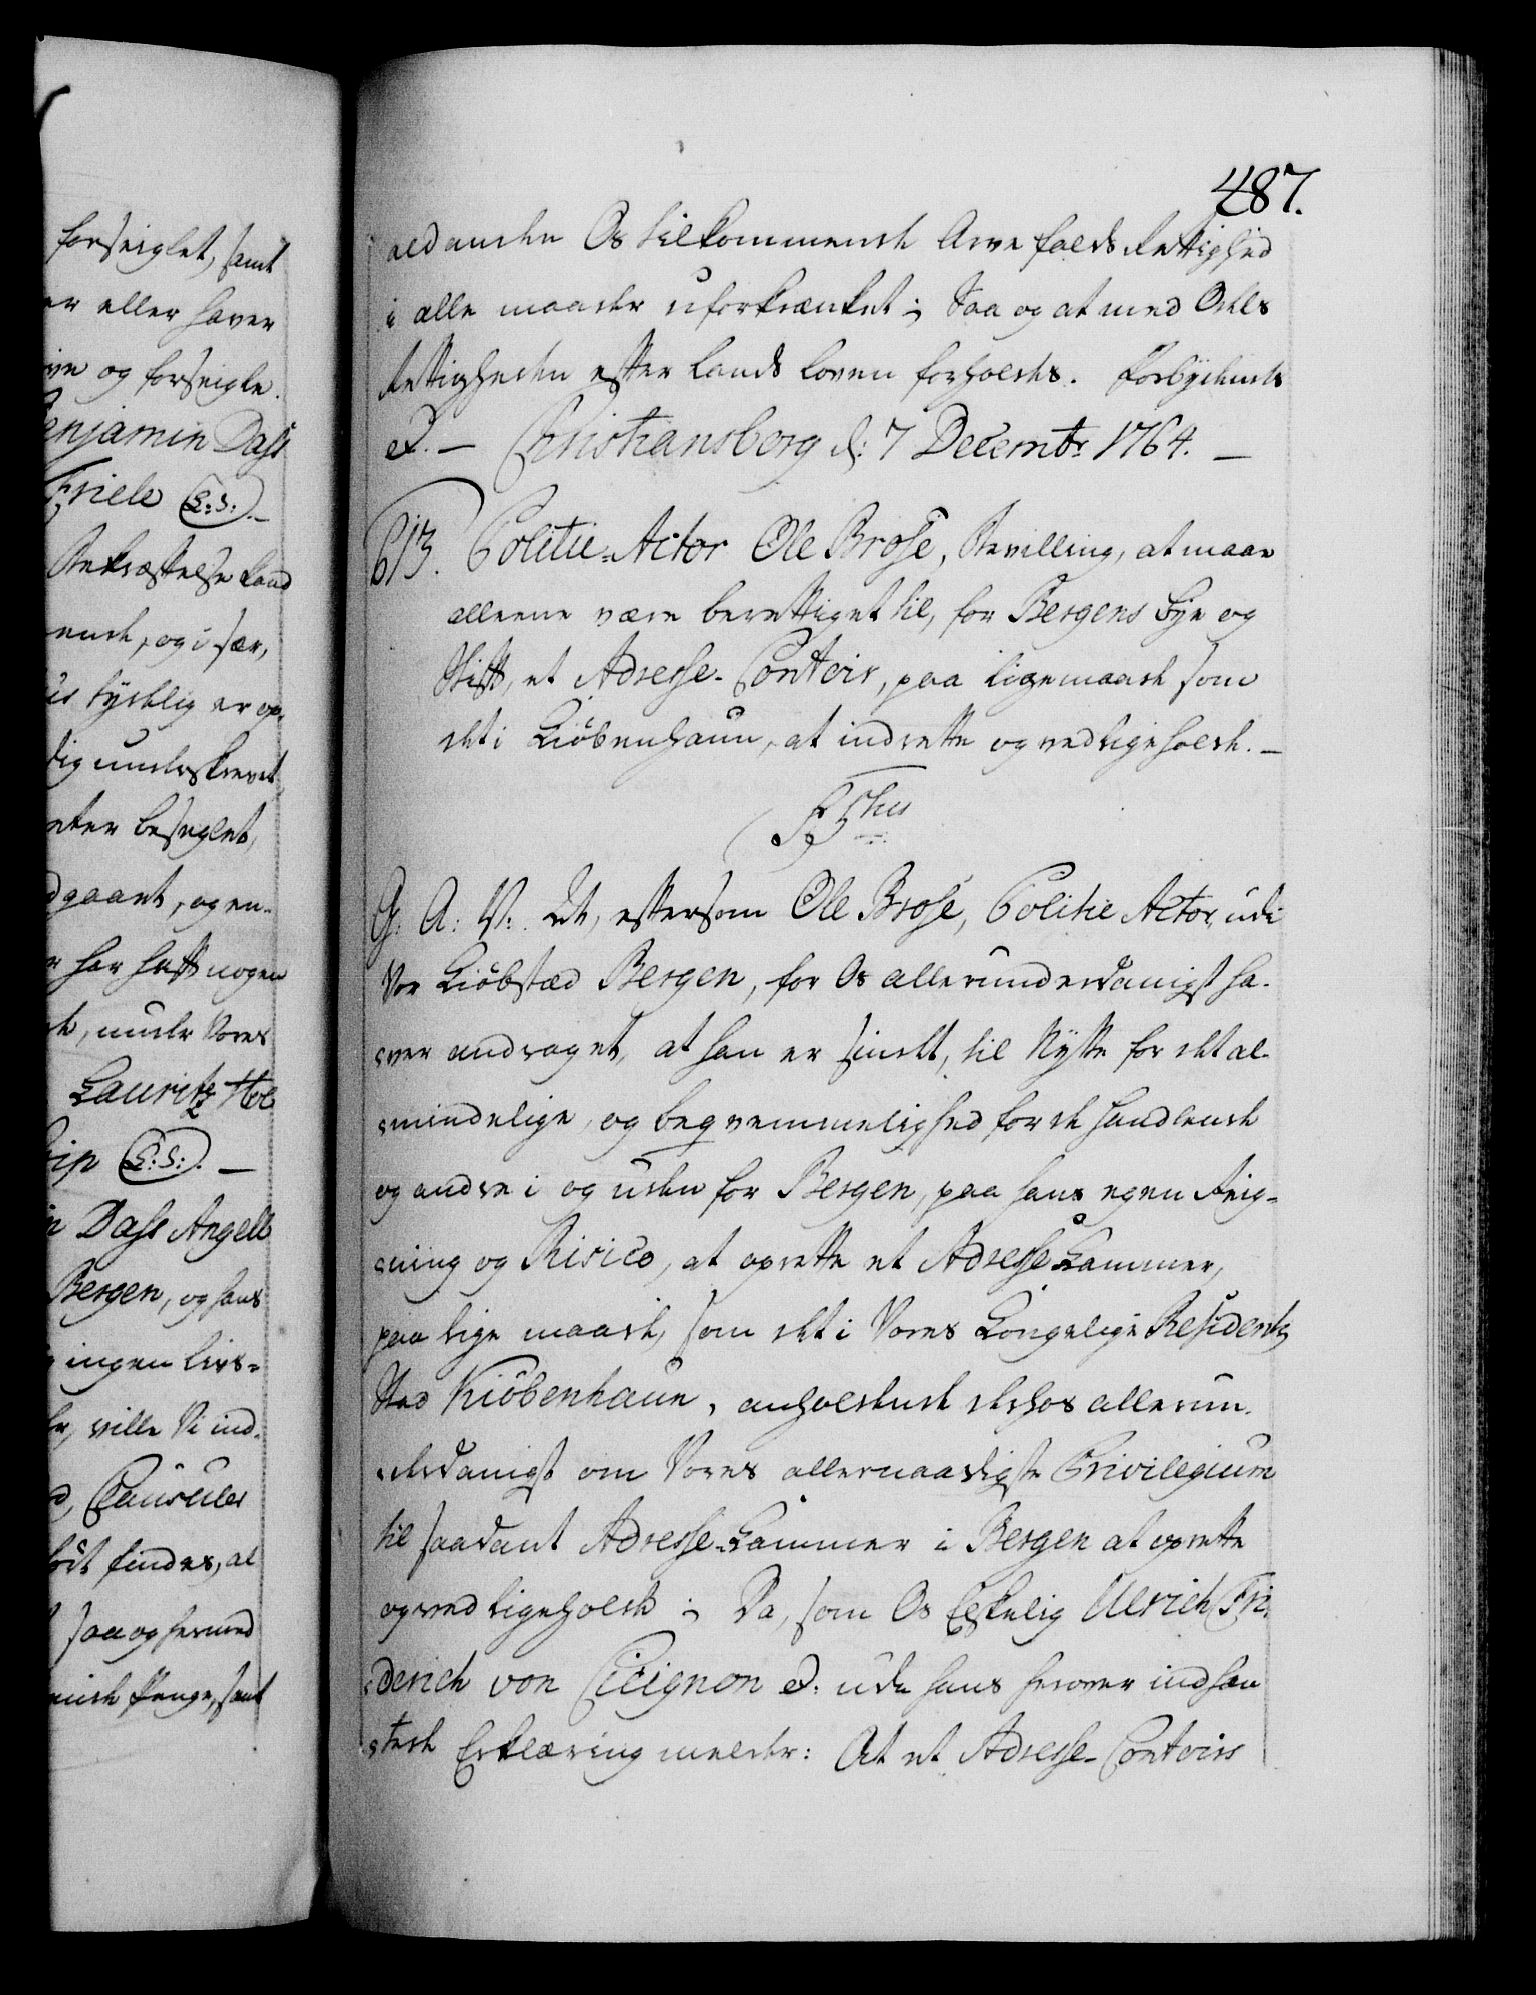 forseiglet, samt
er eller haver
ive og forseigle.
enjamin Dass
Friele (L:S:).
Bekræftelse Land
ende, og i sær,
tydelig er op-
dig underskrevet
besiglet,
dgaaet, og en-
r har hafft nogen
, under Vores
Lauritz Hol
(L:S:). —
n Dass Angell
Bergen, og hans
ingen livs-
, ville Vi ind-
d, Clausuler
findes, al
saa og hermed
Penge, samt
487.
ald anden Os tilkommende Arve falds Rettighed
i alle maader uforkrænket; Saa og at med Odels
Rettigheden efter Lands Loven forholdes. Forbydendes
&. — Christiansborg d: 7 Decembr: 1764. —
613. Politie-Actor Ole Brose, Bevilling, at maae
alleene være berettiget til, for Bergens Bye og
Stift, et Adresse-Contoir, paa ligemaade som
det i Kiöbenhaun, at indrette og vedligeholde. —
F 5tus
G: A: V: At, eftersom Ole Brose, Politie Actor udi
Vor Kiöbstæd Bergen, for Os allerunderdanigst ha-
ver andraget, at han er sindet, til Nytte for det al-
mindelige, og beqvemmelighed for de handlende
og andre i og uden for Bergen, paa hans egen Reig-
ning og Risico, at oprette et Adresse Kammer,
paa lige maade, som det i Vores Kongelige Residentz
Stad Kiöbenhaun, anholdende derhos allerun-
derdanigst om Vores allernaadigste Privilegium
til saadant Adresse-Kammer i Bergen at oprette
og vedligeholde; Da, som Os Elskelig Ulrich Fri-
derich von Cicignon &. udi hans herover indhæn-
tede Erklæring melder: At et Adresse-Contoirs